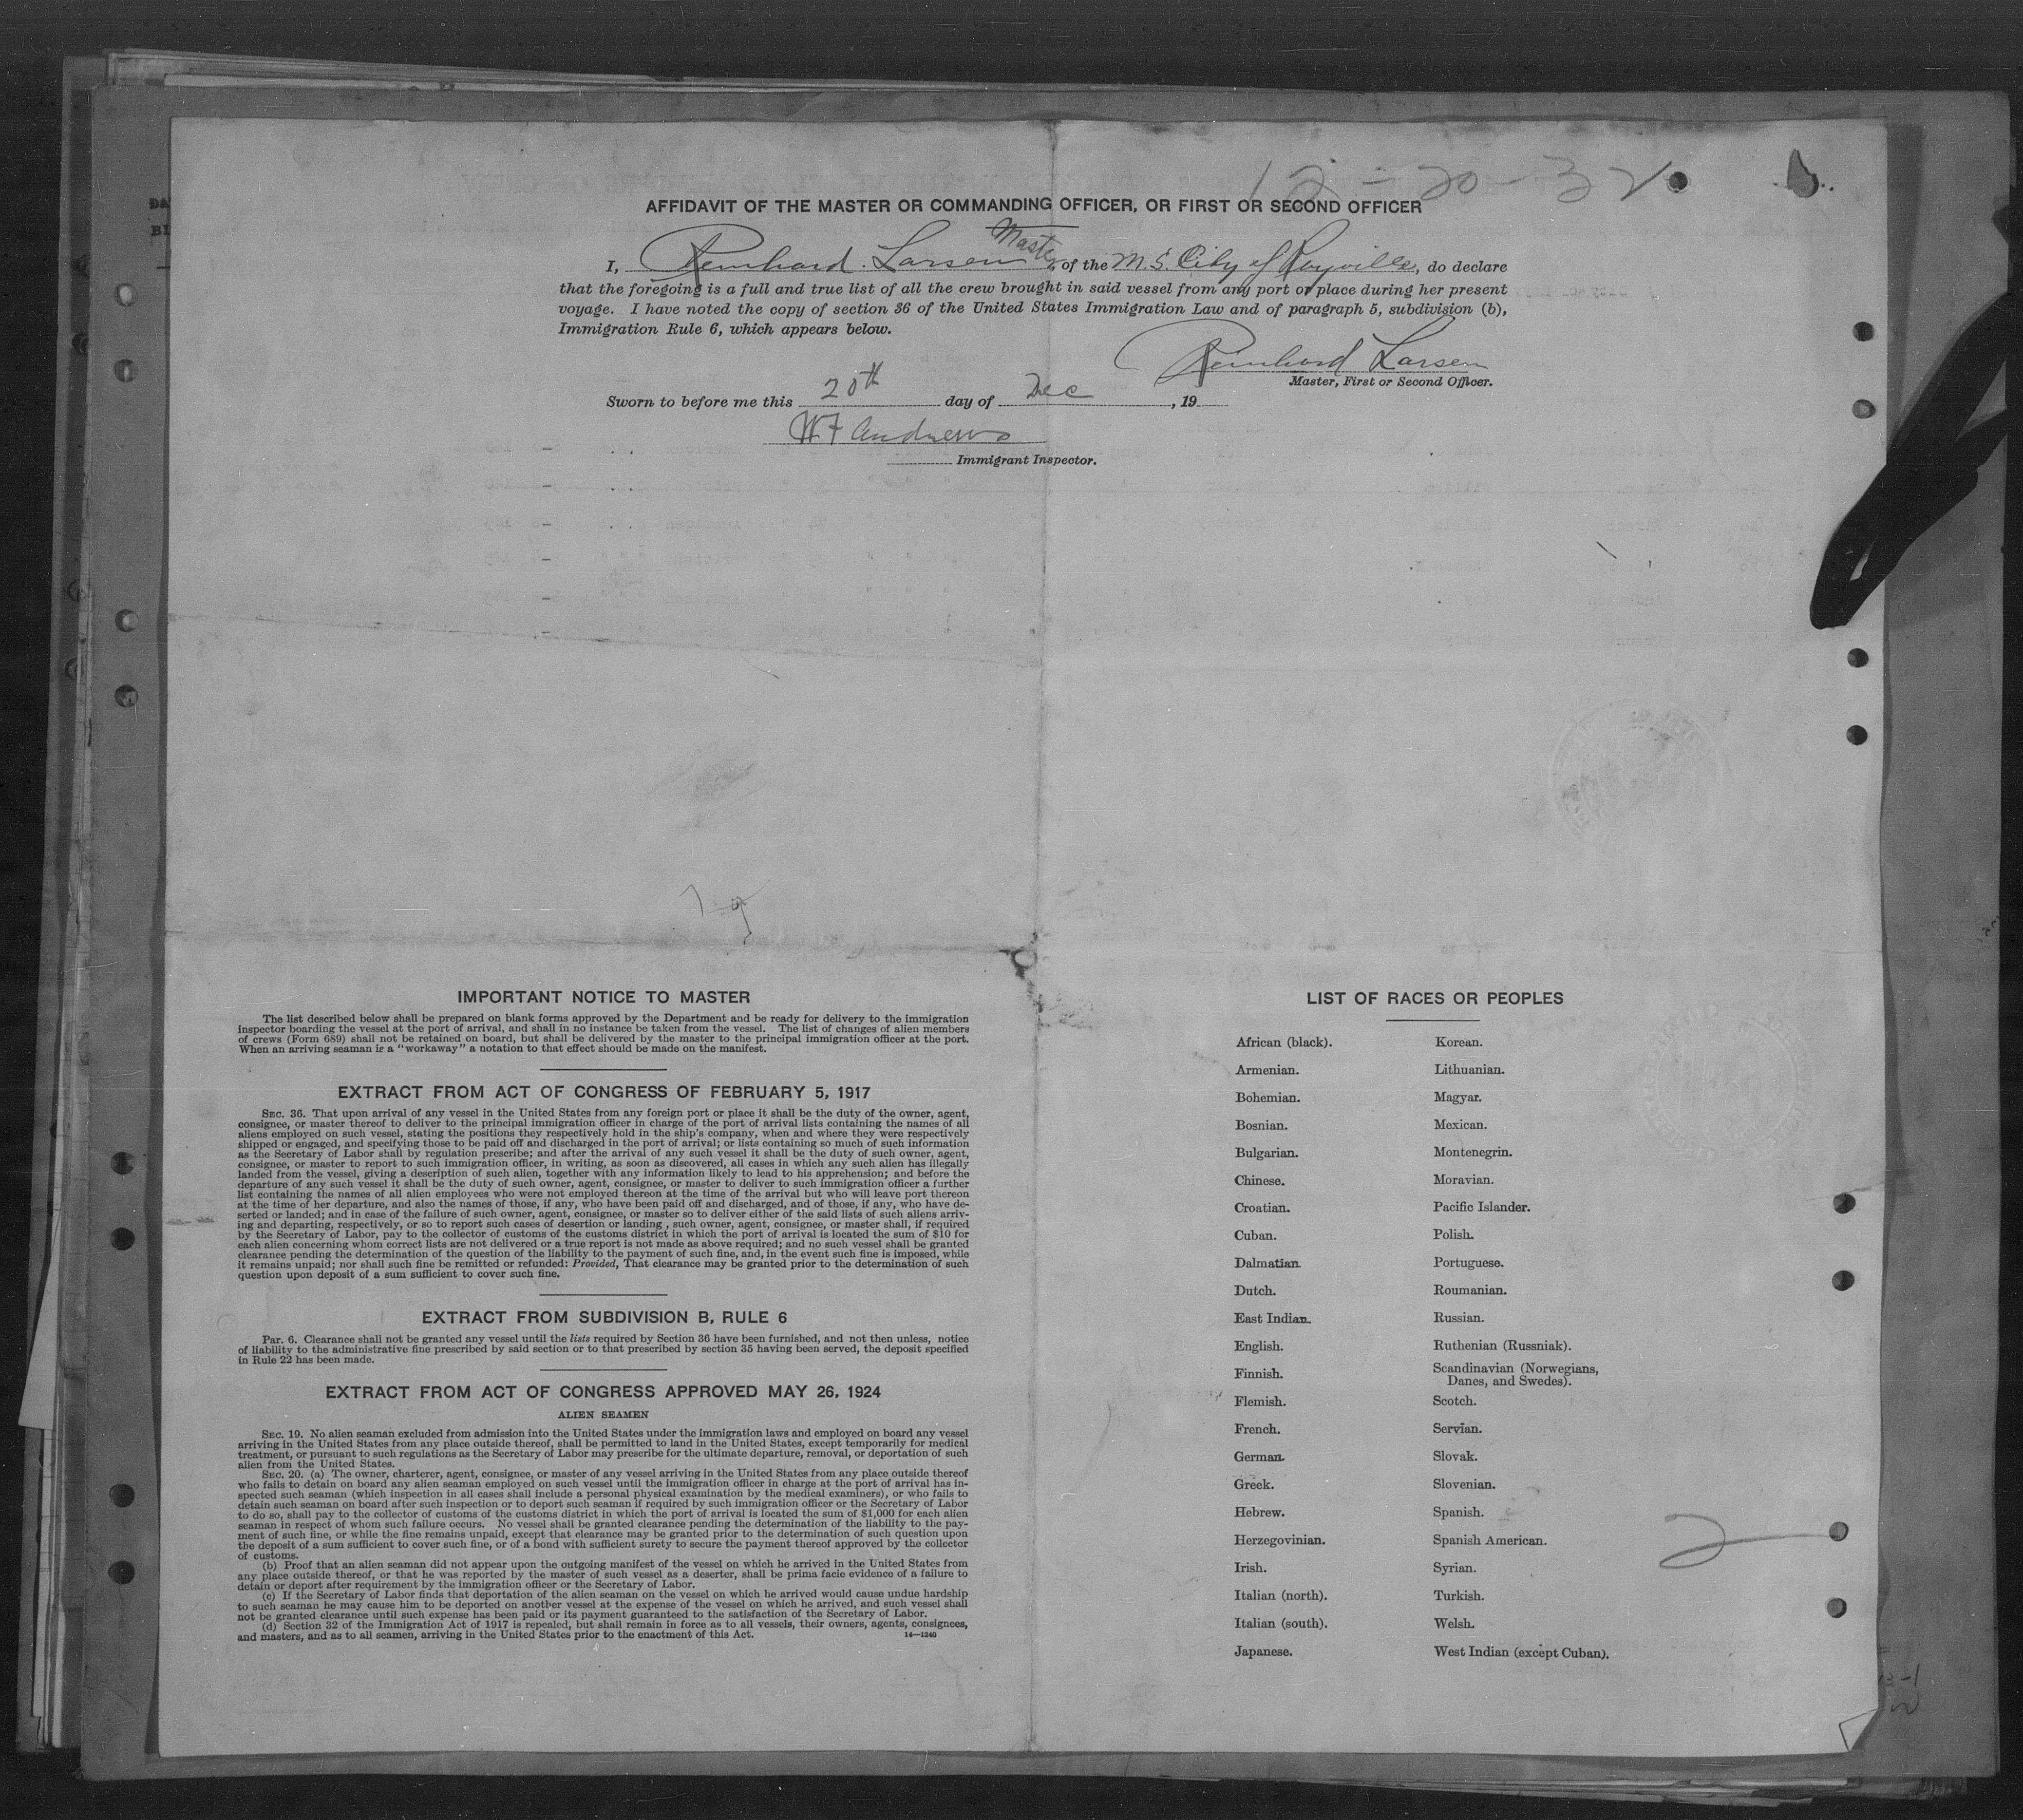 12-20-32
AFFIDAVIT OF THE MASTER OR COMMANDING OFFICER, OR FIRST OR SECOND OFFICER
Master
I, Reinhard. Larsen, of the M.S. City of Rayville, do declare
that the foregoing is a full and true list of all the crew brought in said vessel from any port or place during her present
voyage. I have noted the copy of section 36 of the United States Immigration Law and of paragraph 5, subdivision (b),
Immigration Rule 6, which appears below.
Reinhard Larsen
Master, First or Second Officer.
Sworn to before me this 20th day of Dec, 19
W F Andrews
Immigrant Inspector.
IMPORTANT NOTICE TO MASTER
The list described below shall be prepared on blank forms approved by the Department and be ready for delivery to the immigration
inspector boarding the vessel at the port of arrival, and shall in no instance be taken from the vessel. The list of changes of alien members
of crews (Form 689) shall not be retained on board, but shall be delivered by the master to the principal immigration officer at the port.
When an arriving seaman is a "workaway" a notation to that effect should be made on the manifest.
EXTRACT FROM ACT OF CONGRESS OF FEBRUARY 5, 1917
SEC. 36. That upon arrival of any vessel in the United States from any foreign port or place it shall be the duty of the owner, agent,
consignee, or master thereof to deliver to the principal immigration officer in charge of the port of arrival lists containing the names of all
aliens employed on such vessel, stating the positions they respectively hold in the ship's company, when and where they were respectively
shipped or engaged, and specifying those to be paid off and discharged in the port of arrival; or lists containing so much of such information
as the Secretary of Labor shall by regulation prescribe; and after the arrival of any such vessel it shall be the duty of such owner, agent,
consignee, or master to report to such immigration officer, in writing, as soon as discovered, all cases in which any such alien has illegally
landed from the vessel, giving a description of such alien, together with any information likely to lead to his apprehension; and before the
departure of any such vessel it shall be the duty of such owner, agent, consignee, or master to deliver to such immigration officer a further
list containing the names of all alien employees who were not employed thereon at the time of the arrival but who will leave port thereon
at the time of her departure, and also the names of those, if any, who have been paid off and discharged, and of those, if any, who have de-
serted or landed; and in case of the failure of such owner, agent, consignee, or master so to deliver either of the said lists of such aliens arriv-
ing and departing, respectively, or so to report such cases of desertion or landing , such owner, agent, consignee, or master shall, if required
by the Secretary of Labor, pay to the collector of customs of the customs district in which the port of arrival is located the sum of $10 for
each alien concerning whom correct lists are not delivered or a true report is not made as above required; and no such vessel shall be granted
clearance pending the determination of the question of the liability to the payment of such fine, and, in the event such fine is imposed, while
it remains unpaid; nor shall such fine be remitted or refunded: Provided, That clearance may be granted prior to the determination of such
question upon deposit of a sum sufficient to cover such fine.
EXTRACT FROM SUBDIVISION B, RULE 6
Par. 6. Clearance shall not be granted any vessel until the lists required by Section 36 have been furnished, and not then unless, notice
of liability to the administrative fine prescribed by said section or to that prescribed by section 35 having been served, the deposit specified
in Rule 22 has been made.
EXTRACT FROM ACT OF CONGRESS APPROVED MAY 26, 1924
ALIEN SEAMEN
SEC. 19. No alien seaman excluded from admission into the United States under the immigration laws and employed on board any vessel
arriving in the United States from any place outside thereof, shall be permitted to land in the United States, except temporarily for medical
treatment, or pursuant to such regulations as the Secretary of Labor may prescribe for the ultimate departure, removal, or deportation of such
alien from the United States.
SEC. 20. (a) The owner, charterer, agent, consignee, or master of any vessel arriving in the United States from any place outside thereof
who fails to detain on board any alien seaman employed on such vessel until the immigration officer in charge at the port of arrival has in-
spected such seaman (which inspection in all cases shall include a personal physical examination by the medical examiners), or who fails to
detain such seaman on board after such inspection or to deport such seaman if required by such immigration officer or the Secretary of Labor
to do so, shall pay to the collector of customs of the customs district in which the port of arrival is located the sum of $1,000 for each alien
seaman in respect of whom such failure occurs. No vessel shall be granted clearance pending the determination of the liability to the pay-
ment of such fine, or while the fine remains unpaid, except that clearance may be granted prior to the determination of such question upon
the deposit of a sum sufficient to cover such fine, or of a bond with sufficient surety to secure the payment thereof approved by the collector
of customs.
(b) Proof that an alien seaman did not appear upon the outgoing manifest of the vessel on which he arrived in the United States from
any place outside thereof, or that he was reported by the master of such vessel as a deserter, shall be prima facie evidence of a failure to
detain or deport after requirement by the immigration officer or the Secretary of Labor.
(c) If the Secretary of Labor finds that deportation of the alien seaman on the vessel on which he arrived would cause undue hardship
to such seaman he may cause him to be deported on another vessel at the expense of the vessel on which he arrived, and such vessel shall
not be granted clearance until such expense has been paid or its payment guaranteed to the satisfaction of the Secretary of Labor.
(d) Section 32 of the Immigration Act of 1917 is repealed, but shall remain in force as to all vessels, their owners, agents, consignees,
and masters, and as to all seamen, arriving in the United States prior to the enactment of this Act.
14—1240
LIST OF RACES OR PEOPLES
African (black).
Armenian.
Bohemian.
Bosnian.
Bulgarian.
Chinese.
Croatian.
Cuban.
Dalmatian.
Dutch.
East Indian.
English.
Finnish.
Flemish.
French.
German.
Greek.
Hebrew.
Herzegovinian.
Irish.
Italian (north).
Italian (south).
Japanese.
Korean.
Lithuanian.
Magyar.
Mexican.
Montenegrin.
Moravian.
Pacific Islander.
Polish.
Portuguese.
Roumanian.
Russian.
Ruthenian (Russniak).
Scandinavian (Norwegians,
Danes, and Swedes).
Scotch.
Servian.
Slovak.
Slovenian.
Spanish.
Spanish American.
Syrian.
Turkish.
Welsh.
West Indian (except Cuban).
2